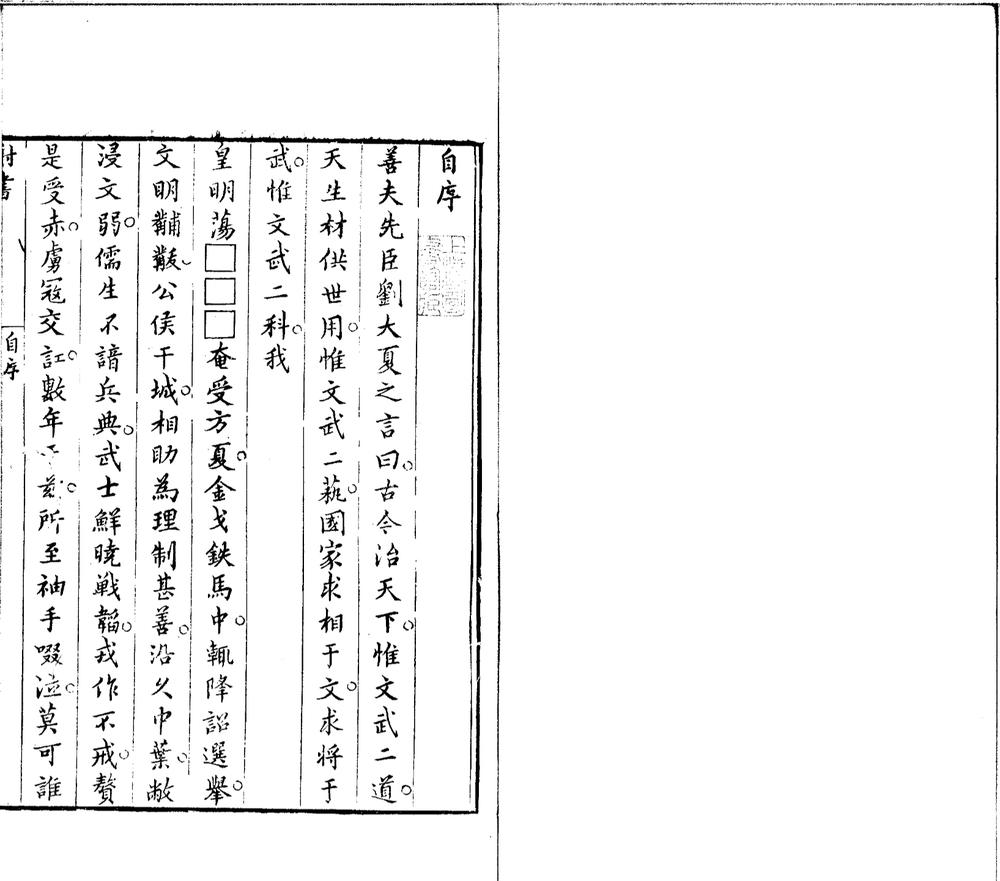 自序
善夫先臣劉大夏之言曰。古今治天下。惟文武二道。
天生材供世用。惟文武二蓺。國家求相于文。求将于
武。惟文武二科。我
皇明蕩□□□奄受方夏。金戈鉄馬中。輒降詔選舉。
文明黼黻、公侯干城。相助為理制甚善。沿乆中葉。敝
浸文弱。儒生不諳兵典。武士鮮曉戦韜。戎作不戒。贅
是受赤。虜冦交訌。數年于兹。所至袖手啜泣。莫可誰
自序